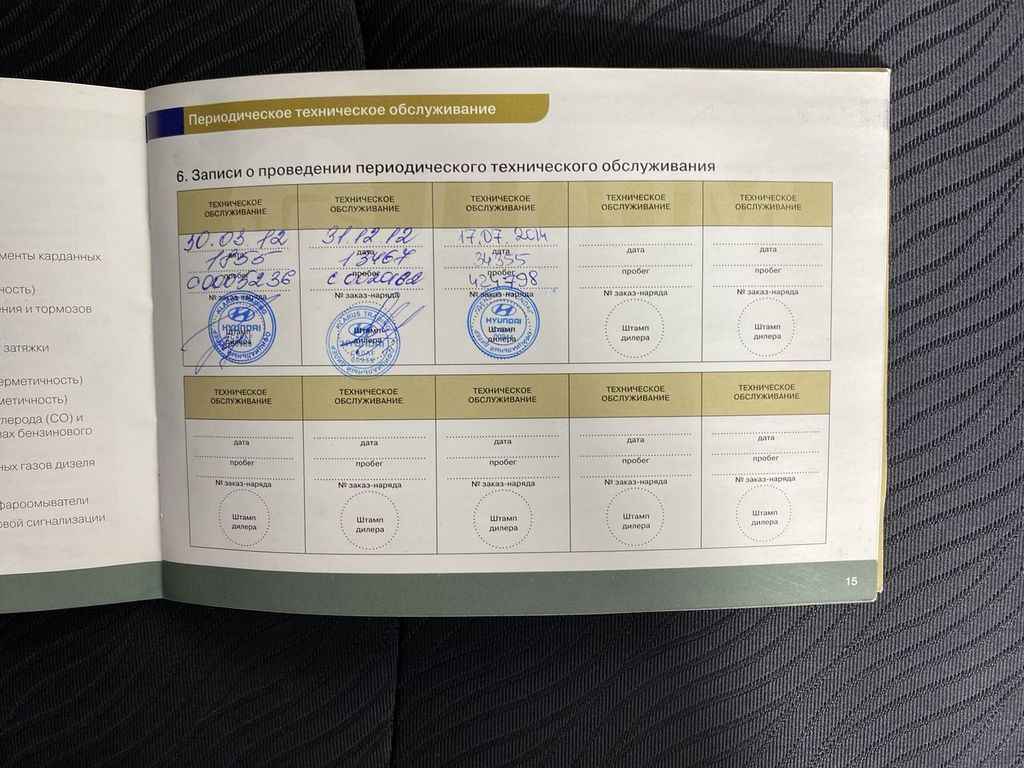 Периодическое техническое обслуживание
6. Записи о проведении периодического технического обслуживания
ТЕХНИЧЕСКОЕ ОБСЛУЖИВАНИЕ ТЕХНИЧЕСКОЕ ОБСЛУЖИВАНИЕ ТЕХНИЧЕСКОЕ ОБСЛУЖИВАНИЕ ТЕХНИЧЕСКОЕ ОБСЛУЖИВАНИЕ ТЕХНИЧЕСКОЕ ОБСЛУЖИВАНИЕ
30.03 12 31.12.12 17.07.2014
дата дата дата дата дата
13467 34355
пробег пробег пробег пробег
00003236 424798
№ заказ-наряда № заказ-наряда № заказ-наряда № заказ-наряда № заказ-наряда
HYUNDAI HYUNDAI HYUNDAI
Штамп Штамп Штамп Штамп
дилера дилера дилера дилера дилера
ТЕХНИЧЕСКОЕ ОБСЛУЖИВАНИЕ ТЕХНИЧЕСКОЕ ОБСЛУЖИВАНИЕ ТЕХНИЧЕСКОЕ ОБСЛУЖИВАНИЕ ТЕХНИЧЕСКОЕ ОБСЛУЖИВАНИЕ ТЕХНИЧЕСКОЕ ОБСЛУЖИВАНИЕ
дата дата дата дата дата
пробег пробег пробег пробег пробег
№ заказ-наряда № заказ-наряда № заказ-наряда № заказ-наряда № заказ-наряда
Штамп Штамп Штамп Штамп Штамп
дилера дилера дилера дилера дилера
15
менты карданных
ность)
ения и тормозов
затяжки
ерметичность)
метичность)
лерода (СО) и
зах бензинового
ных газов дизеля
фароомыватели
овой сигнализации